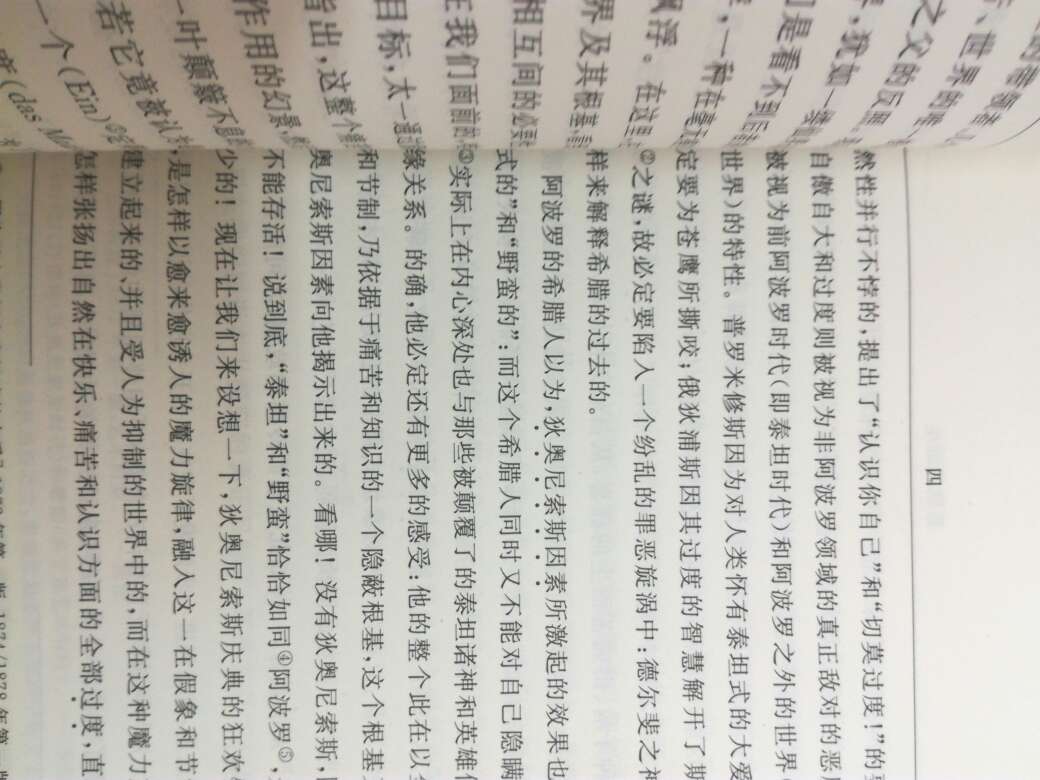 四
然性并行不悖的，提出了“认识你自己”和“切莫过度！”的
自傲自大和过度则被视为非阿波罗领域的真正敌对的恶
被视为前阿波罗时代（即泰坦时代）和阿波罗之外的世界
世界）的特性。普罗米修斯因为对人类怀有泰坦式的大爱
定要为苍鹰所撕咬；俄狄浦斯因其过度的智慧解开了斯
②之谜，故必定要陷入一个纷乱的罪恶旋涡中：德尔斐之神
样来解释希腊的过去的。
阿波罗的希腊人以为，狄奥尼索斯因素所激起的效果也
式的”和“野蛮的”：而这个希腊人同时又不能对自己隐瞒
③实际上在内心深处也与那些被颠覆了的泰坦诸神和英雄
缘关系。的确，他必定还有更多的感受：他的整个此在以
和节制，乃依据于痛苦和知识的一个隐蔽根基，这个根基
奥尼索斯因素向他揭示出来的。看哪！没有狄奥尼索斯，
不能存活！说到底，“泰坦”和“野蛮”恰恰如同④阿波罗⑤，
少的！现在让我们来设想一下，狄奥尼索斯庆典的狂欢
是怎样以愈来愈诱人的魔力旋律，融入这一在假象和节
建立起来的、并且受人为抑制的世界中的，而在这种魔力
怎样张扬出自然在快乐、痛苦和认识方面的全部过度，直
、世界的唯一
之父的反照。
，犹如一缕
是看不到
，一种在毫无
飘浮。在这里
界及其根基，
相互间的必要
在我们面前的
目标，太一通
指出，这整个
作用的幻景，
一叶颠簸不
若它竟被认
一个（Ein）
度（das M